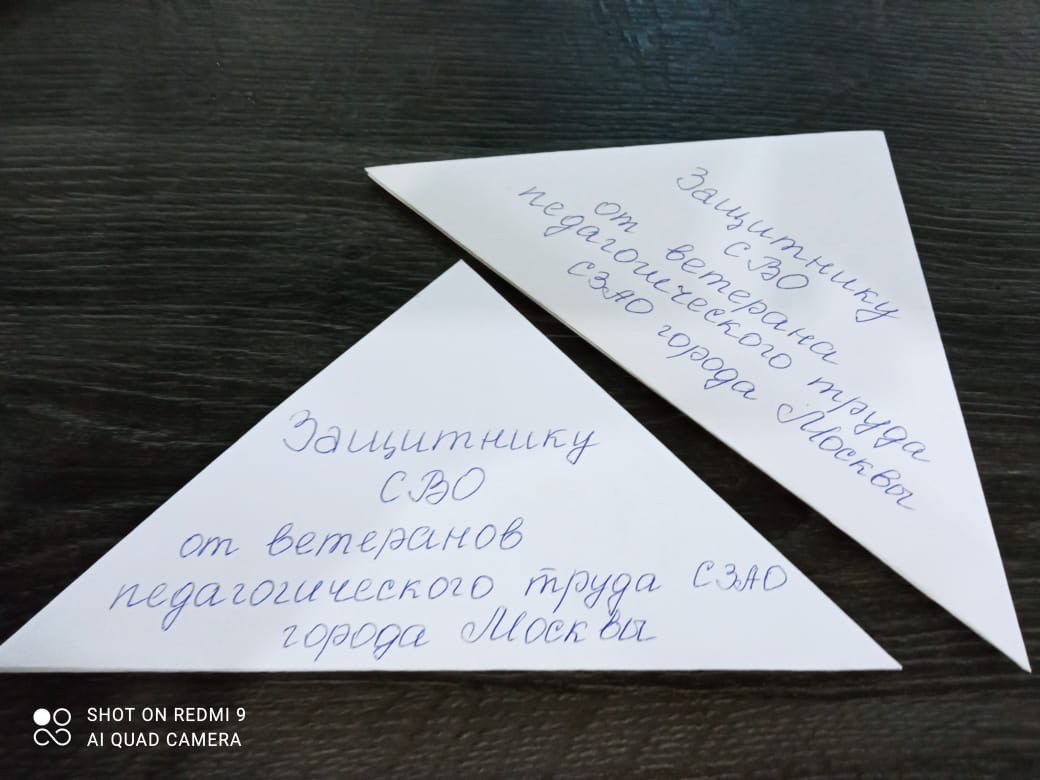 Защитнику
СВО
от ветерана
педагогического труда
СЗАО города Москвы
Защитнику
СВО
от ветеранов
педагогического труда СЗАО
города Москвы
SHOT ON REDMI 9
AI QUAD CAMERA